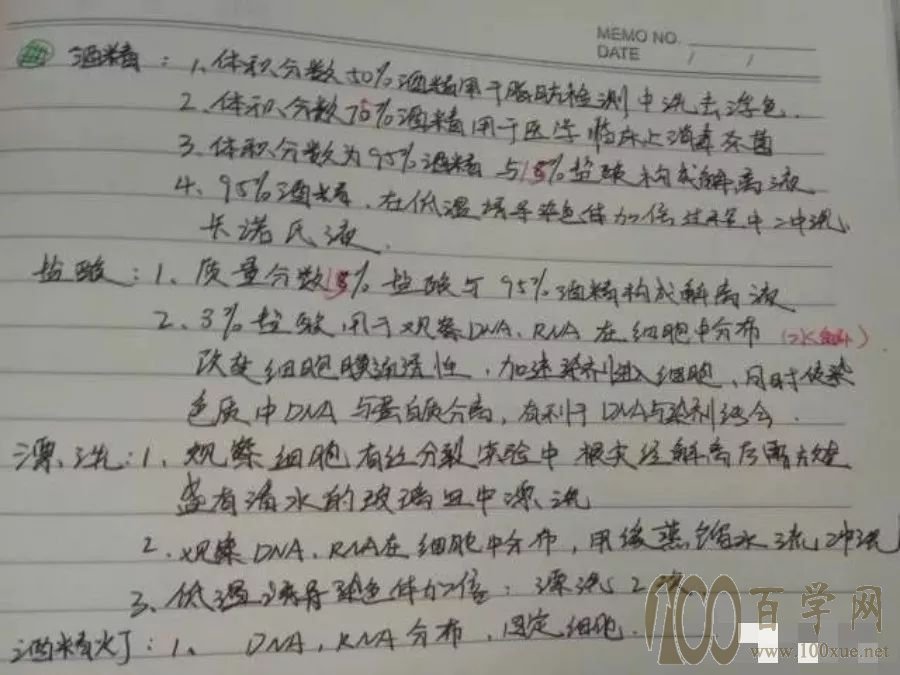 MEMO NO.
DATE / /
酒精：1、体积分数50%酒精用于脂肪检测中洗去浮色.
2、体积分数75%酒精用于医学临床上消毒杀菌
3、体积分数为95%酒精与15%盐酸构成解离液
4、95%酒精，在低温诱导染色体加倍过程中冲洗
卡诺氏液.
盐酸：1、质量分数15%盐酸与95%酒精构成解离液
2、3%盐酸用于观察DNA、RNA在细胞中分布
改变细胞膜流透性，加速染剂进入细胞，同时使染
色质中DNA与蛋白质分离，有利于DNA与染剂结合.
漂洗：1、观察细胞有丝分裂实验中根尖经解离后需放
盛有清水的玻璃皿中漂洗
2、观察DNA、RNA在细胞中分布，用缓蒸馏水流冲洗
3、低温诱导染色体加倍：漂洗2次
酒精灯：1、DNA，RNA分布，固定细胞.
100百学网
www.100xue.net